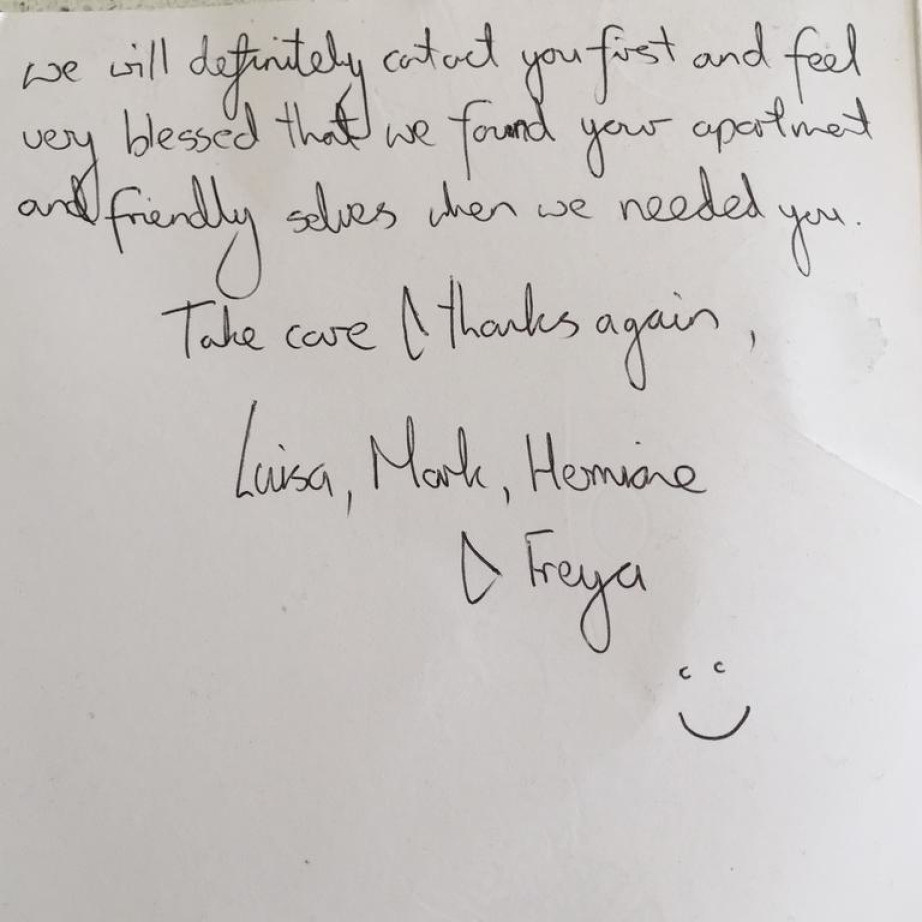 we will definitely contact you first and feel
very blessed that we found your apartment
and friendly selves when we needed you.
Take care & thanks again,
Luisa, Mark, Hermione
& Freya